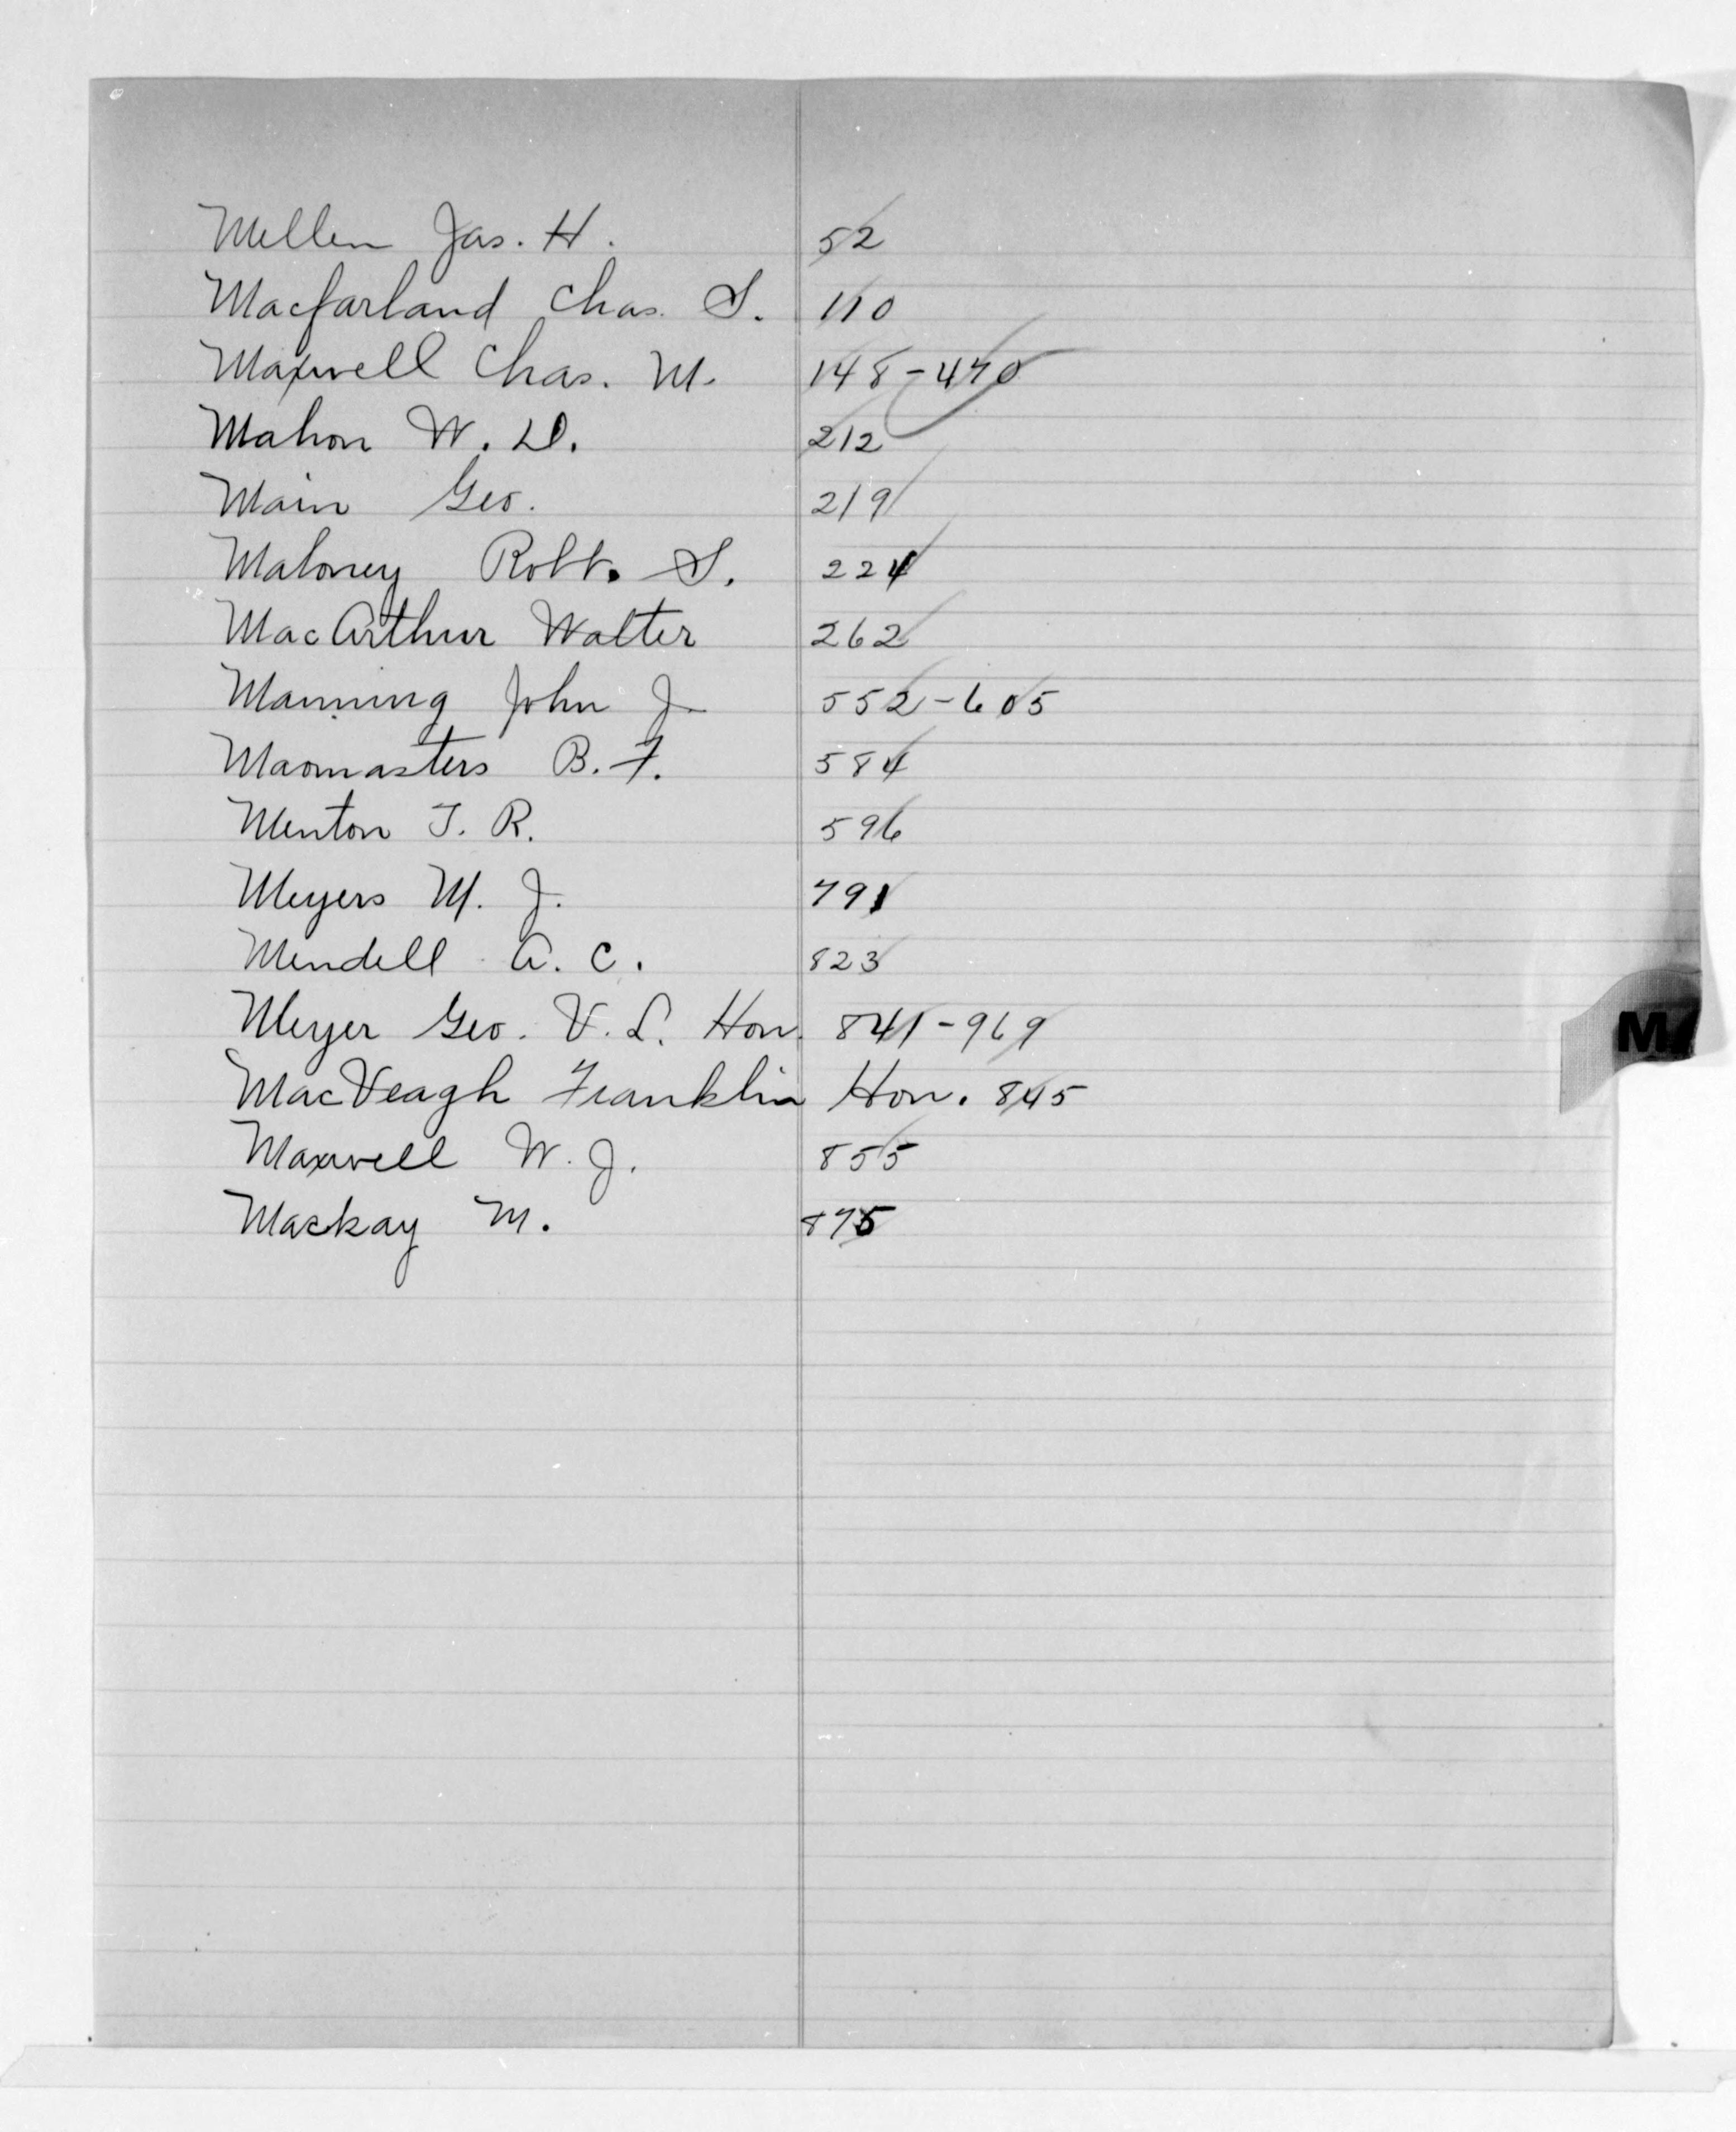 Mellen Jas. H. 52
Macfarland Chas. S. 110
Maxwell Chas. M. 148-470
Mahon W. D. 212
Main Geo. 219
Maloney Robt. S. 224
MacArthur Walter 262
Manning John J. 552-605
Macmasters B. F. 584
Menton J. R. 596
Meyers M. J. 791
Mendell A. C. 823
Meyer Geo. V. L. Hon. 841-969
M
MacVeagh Franklin Hon. 845
Maxwell W. J. 855
Mackay M. 875